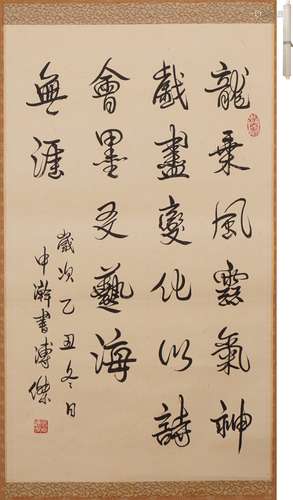 龍乘風雲氣神
戲盡變化以詩
會墨友藝海
無涯
歲次乙丑冬日
書溥傑